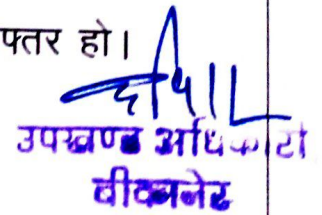 फ्तर हो।
उपखण्ड अधिकारी
बीकानेर